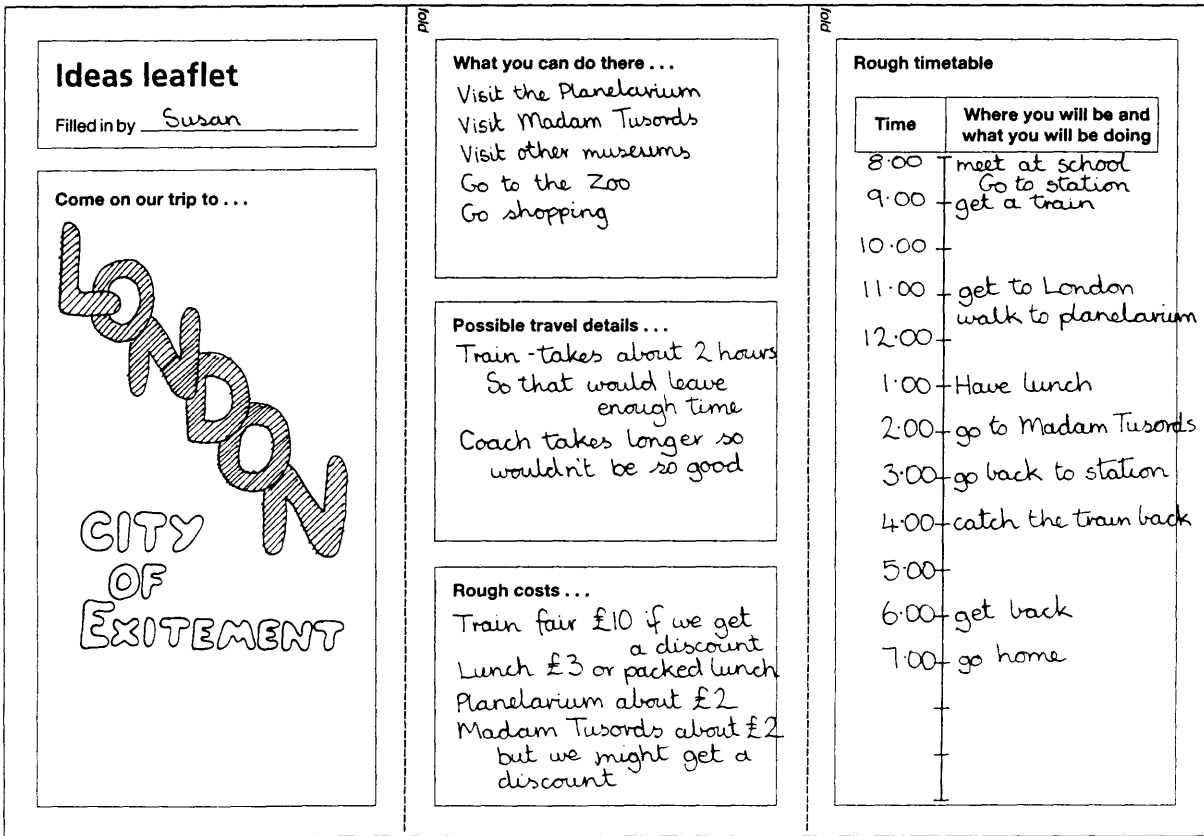 Ideas leaflet
Filled in by Susan
Come on our trip to . . .
LONDON
CITY
OF
EXITEMENT
fold
What you can do there . . .
Visit the Planelarium
Visit Madam Tusords
Visit other museums
Go to the Zoo
Go shopping
Possible travel details . . .
Train - takes about 2 hours
So that would leave
enough time
Coach takes longer so
wouldn't be so good
Rough costs . . .
Train fair £10 if we get
a discount
Lunch £3 or packed lunch
Planelarium about £2
Madam Tusords about £2
but we might get a
discount
fold
Rough timetable
Time Where you will be and
what you will be doing
8.00 meet at school
Go to station
9.00 get a train
10.00
11.00 get to London
walk to planelarium
12.00
1.00 Have lunch
2.00 go to Madam Tusords
3.00 go back to station
4.00 catch the train back
5.00
6.00 get back
7.00 go home